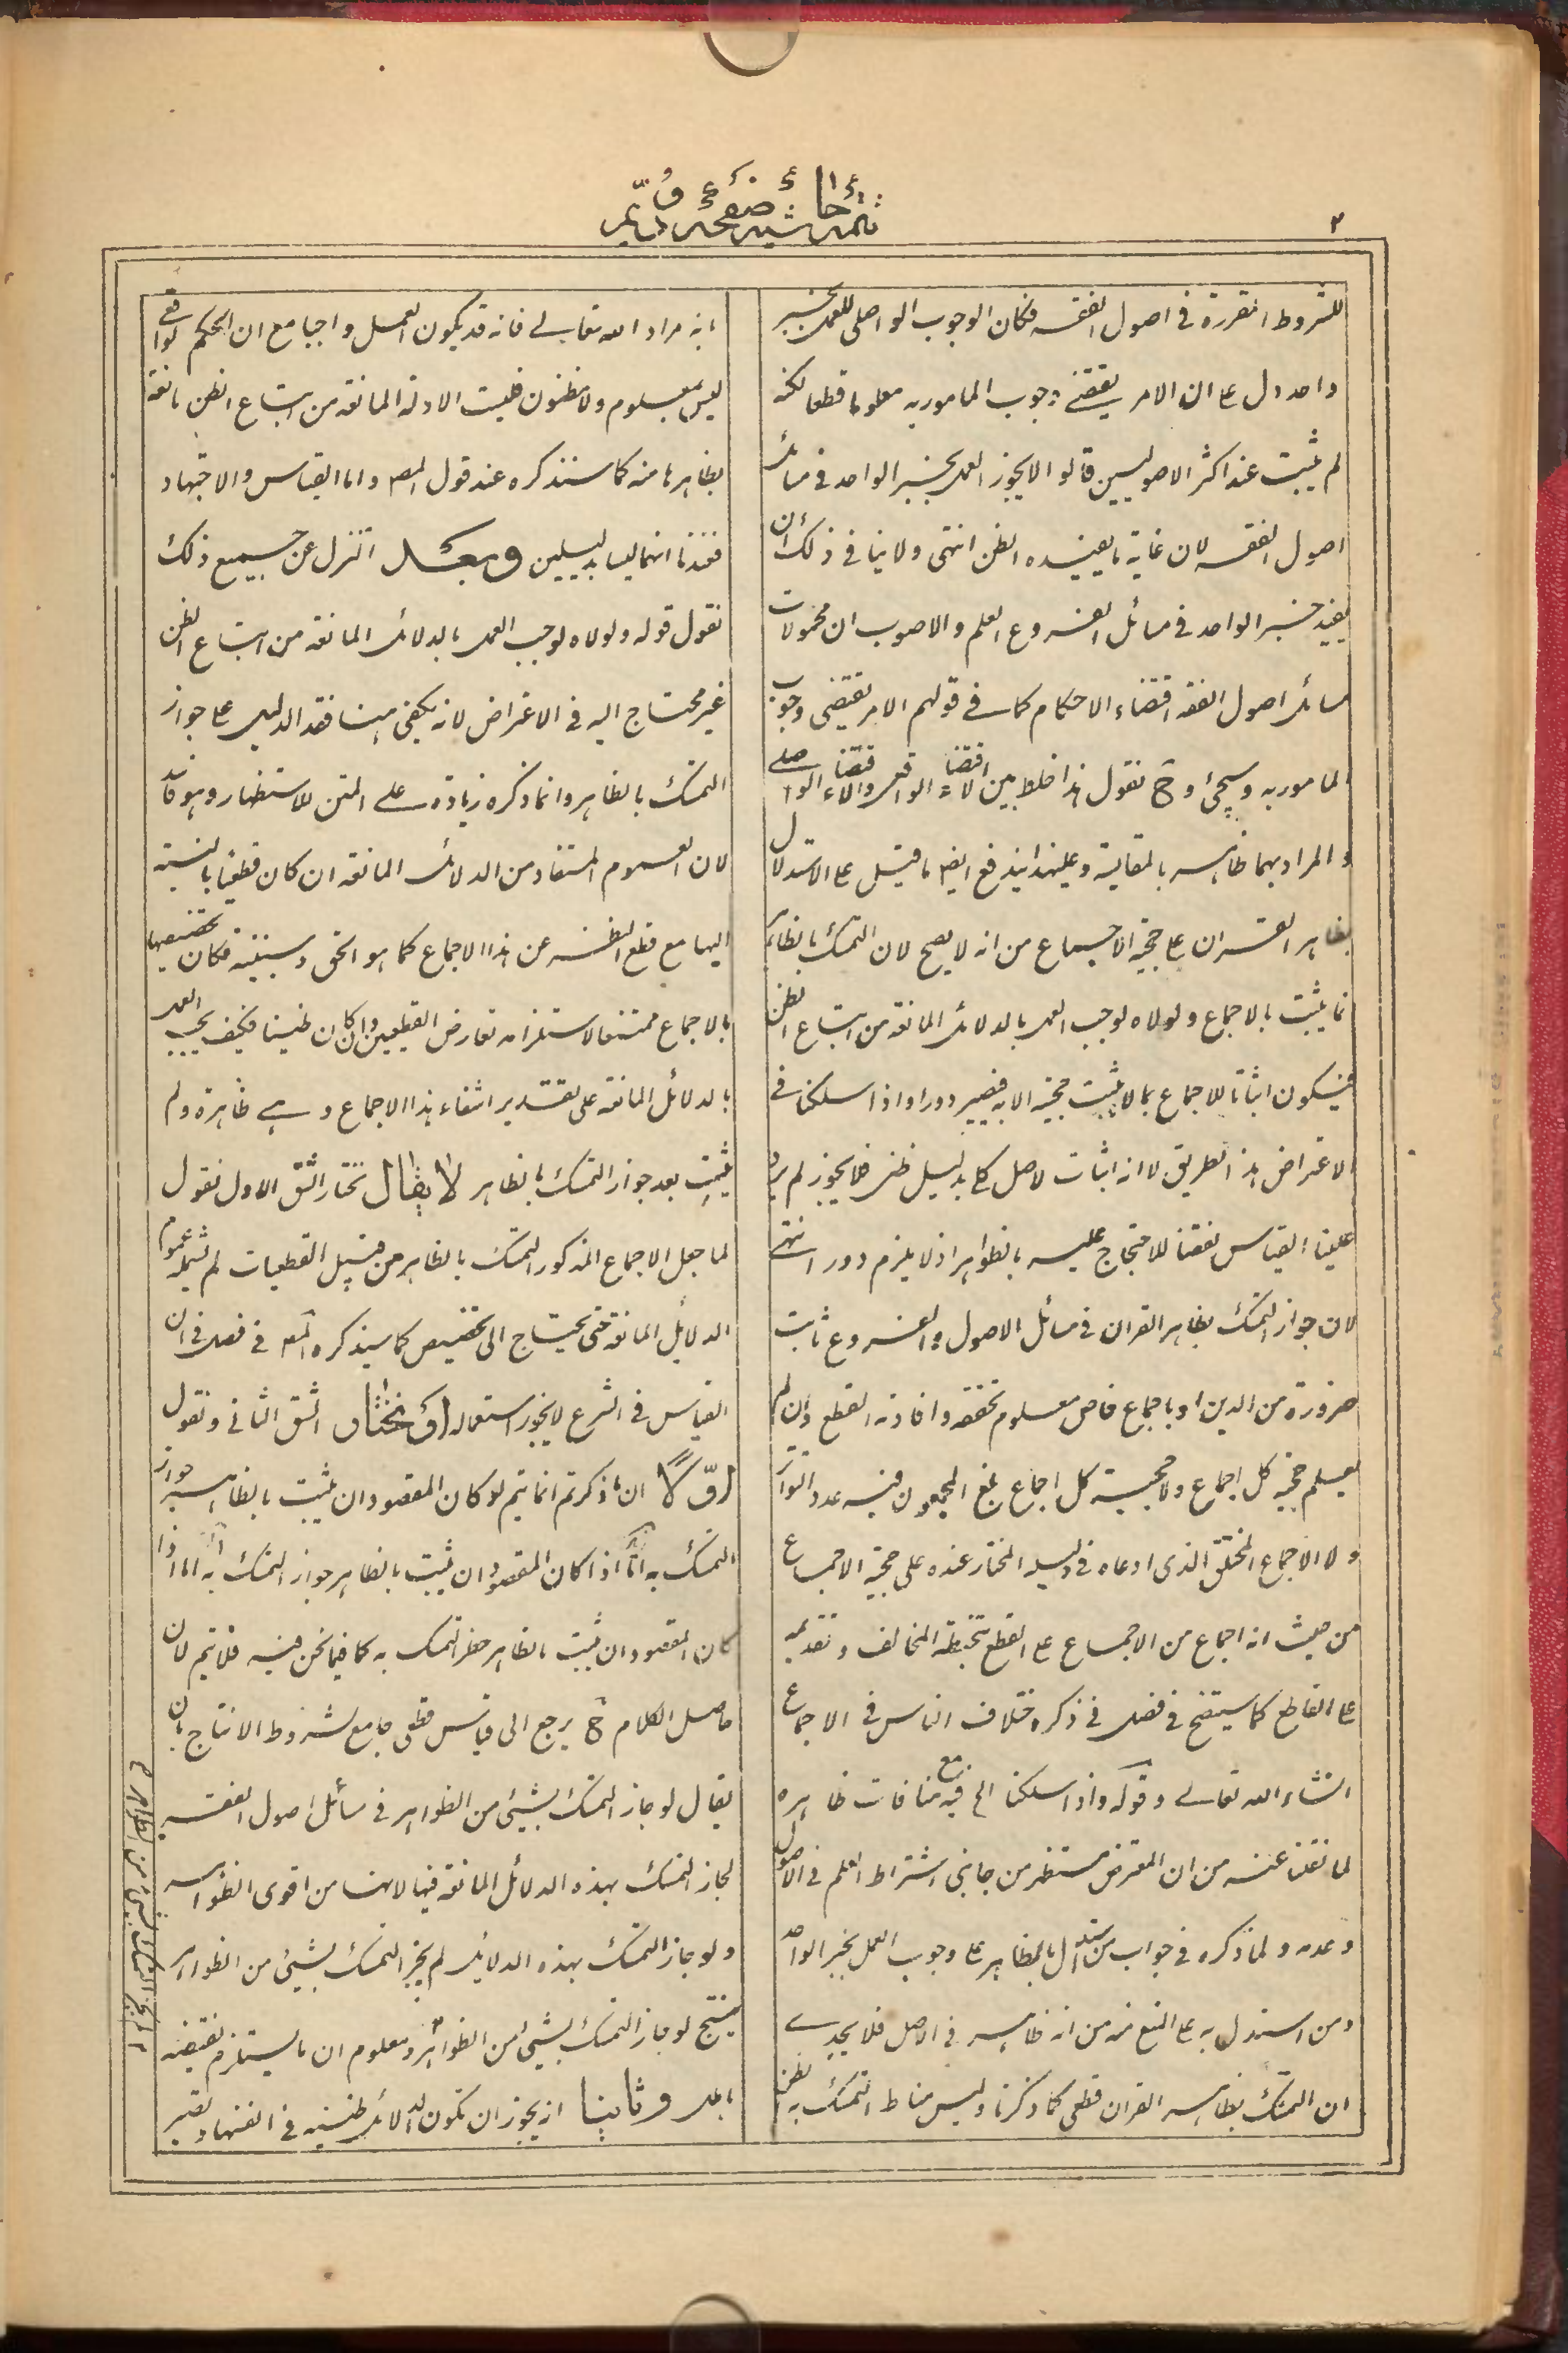 تتمة حاشية صفحة قديم
٢
للشروط المقررة فى اصول الفقه فكان الوجوب الواصلى للعمل بخبر
واحد دل على ان الامر يقتضى وجوب المامور به معلوما قطعا لكنه
لم يثبت عند اكثر الاصوليين قالوا لا يجوز العمل بخبر الواحد فى مسائل
اصول الفقه لان غاية ما يفيده الظن انتهى ولا ينافى ذلك ان
يفيد خبر الواحد فى مسائل الفروع العلم والاصوب ان محمولات
مسائل اصول الفقه اقتضاء الاحكام كما فى قولهم الامر يقتضى وجوب
المامور به وسيجئ وح نقول هذا خلط بين الاقتضاء الواقعى والاقتضاء الواصلى
والمراد بهما ظاهر بالمقايسة وعليهذا يندفع ايض ما قيل على الاستدلال
بظاهر القران على حجية الاجماع من انه لا يصح لان التمسك بالظاهر
انما يثبت بالاجماع ولولاه لوجب العمل بالدلائل المانعة من اتباع الظن
فيكون اثباتا للاجماع بما لا يثبت حجيته الا به فيصير دورا واذا سلكنا فى
الاعتراض هذا الطريق لا انه اثبات لاصل كلى بدليل ظنى فلا يجوز لم يرد
علينا القياس نقضا للاحتجاج عليه بالظواهر اذ لا يلزم دور انتهى
لان جواز التمسك بظاهر القران فى مسائل الاصول والفروع ثابت
ضرورة من الدين او باجماع خاص معلوم تحققه وافادته القطع وان لم
يعلم حجية كل اجماع ولا حجية كل اجماع بلغ المجمعون فيه عدد التواتر
ولا الاجماع المختلق الذى ادعاه فى دليله المختار عنده على حجية الاجماع
من حيث انه اجماع من الاجماع على القطع بتخطئة المخالف وتقديمه
على القاطع كما سيتضح فى فصل فى ذكر اختلاف الناس فى الاجماع
انشاء الله تعالى وقوله واذا سلكنا الخ فيه مع منافات ظاهره
لما نقلنا عنه من ان المعترض مستظهر من جانبى اشتراط العلم فى الاصول
وعدمه ولما ذكره فى جواب من استدل بالظاهر على وجوب العمل بخبر الواحد
ومن استدل به على المنع منه من انه ظاهر فى الاصل فلا يجدى
ان التمسك بظاهر القران قطعى كما ذكرنا وليس مناط التمسك به الظن
انه مراد الله تعالى فانه قد يكون العمل واجبا مع ان الحكم الواقعى
ليس بمعلوم ولا مظنون فليست الادلة المانعة من اتباع الظن مانعة
بظاهرها منه كما سنذكره عند قول المص واما القياس والاجتهاد
فعندنا انهما ليسا بدليلين وبعد التنزل عن جميع ذلك
نقول قوله ولولاه لوجب العمل بالدلائل المانعة من اتباع الظن
غير محتاج اليه فى الاعتراض لانه يكفى هنا فقد الدليل على جواز
التمسك بالظاهر وانما ذكره زيادة على المتن للاستظهار وهو فاسد
لان العموم المستفاد من الدلائل المانعة ان كان قطعيا بالنسبة
اليها مع قطع النظر عن هذا الاجماع كما هو الحق وسنبينه فكان تخصيصها
بالاجماع ممتنعا لاستلزامه تعارض القطعيين وان كان ظنيا فكيف يجب العمل
بالدلائل المانعة على تقدير انتفاء هذا الاجماع وهى ظاهرة ولم
يثبت بعد جواز التمسك بالظاهر لا يقال نختار الشق الاول نقول
لما جعل الاجماع المذكور التمسك بالظاهر من قبيل القطعيات لم تشمله عموم
الدلائل المانعة حتى يحتاج الى تخصيص كما سيذكره المص فى فصل فى ان
القياس فى الشرع لا يجوز استعماله او نختار الشق الثانى ونقول
اولا ان ما ذكرتم انما يتم لو كان المقصود ان يثبت بالظاهر جواز
التمسك به اذا كان المقصود ان يثبت بالظاهر جواز التمسك به اما اذا
كان المقصود ان يثبت بالظاهر حظر التمسك به كما فيما نحن فيه فلا يتم لان
حاصل الكلام ح يرجع الى قياس قطعى جامع لشروط الانتاج بان
يقال لو جاز التمسك بشيئ من الظواهر فى مسائل اصول الفقه
لجاز التمسك بهذه الدلائل المانعة فيها لانها من اقوى الظواهر
ولو جاز التمسك بهذه الدلائل لم يجز التمسك بشيئ من الظواهر
ينتج لو جاز التمسك بشيئ من الظواهر ومعلوم ان ما يستلزم نقيضه
باطل وثانيا انه يجوز ان تكون الدلائل ظنية فى انفسها وتصير
لم يجز التمسك بشيئ من الظواهر